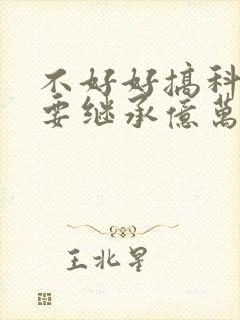 不好好搞科
要继承億萬
王北星